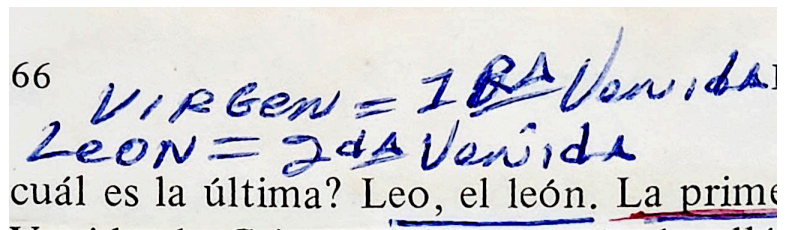 66
VIRGEN = 1RA Venida
LEON = 2dA Venida
cuál es la última? Leo, el león. La prime